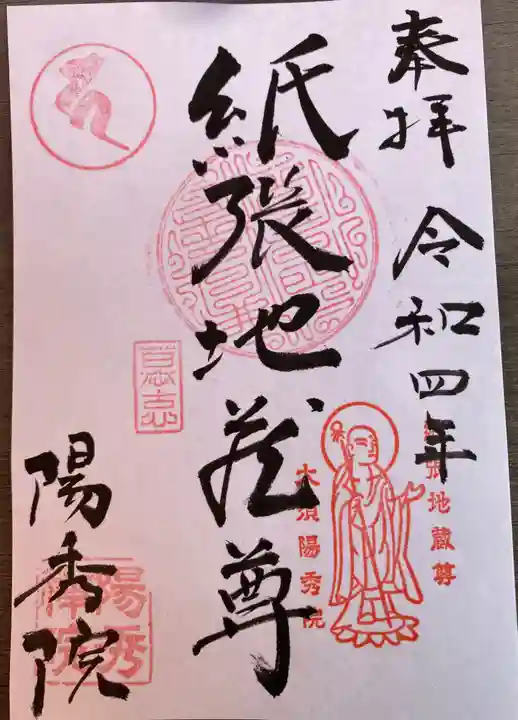 奉拝 令和四年
紙張地蔵尊
陽秀院
紙張地蔵尊
大須陽秀院
陽秀
院